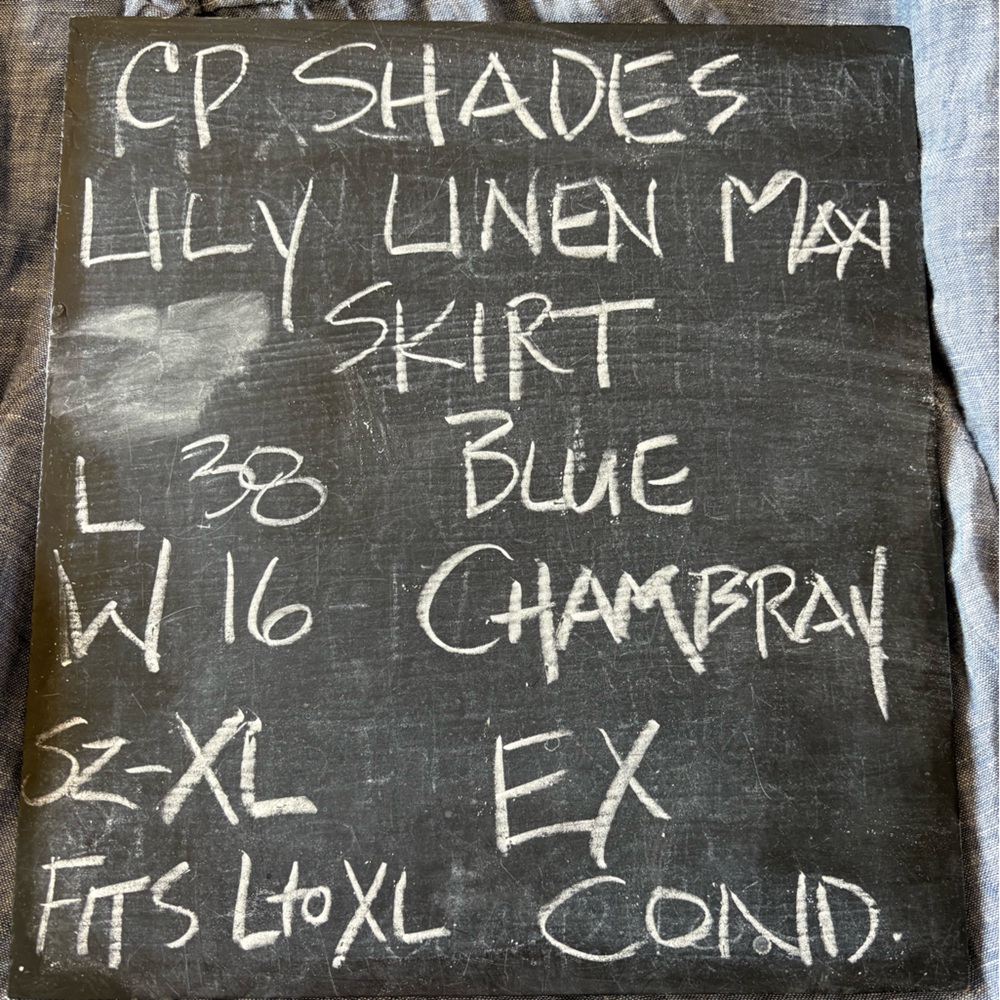 CP SHADES
LILY LINEN MAXI
SKIRT
L 38 BLUE
W 16 CHAMBRAY
SZ-XL EX
FITS L to XL COND.